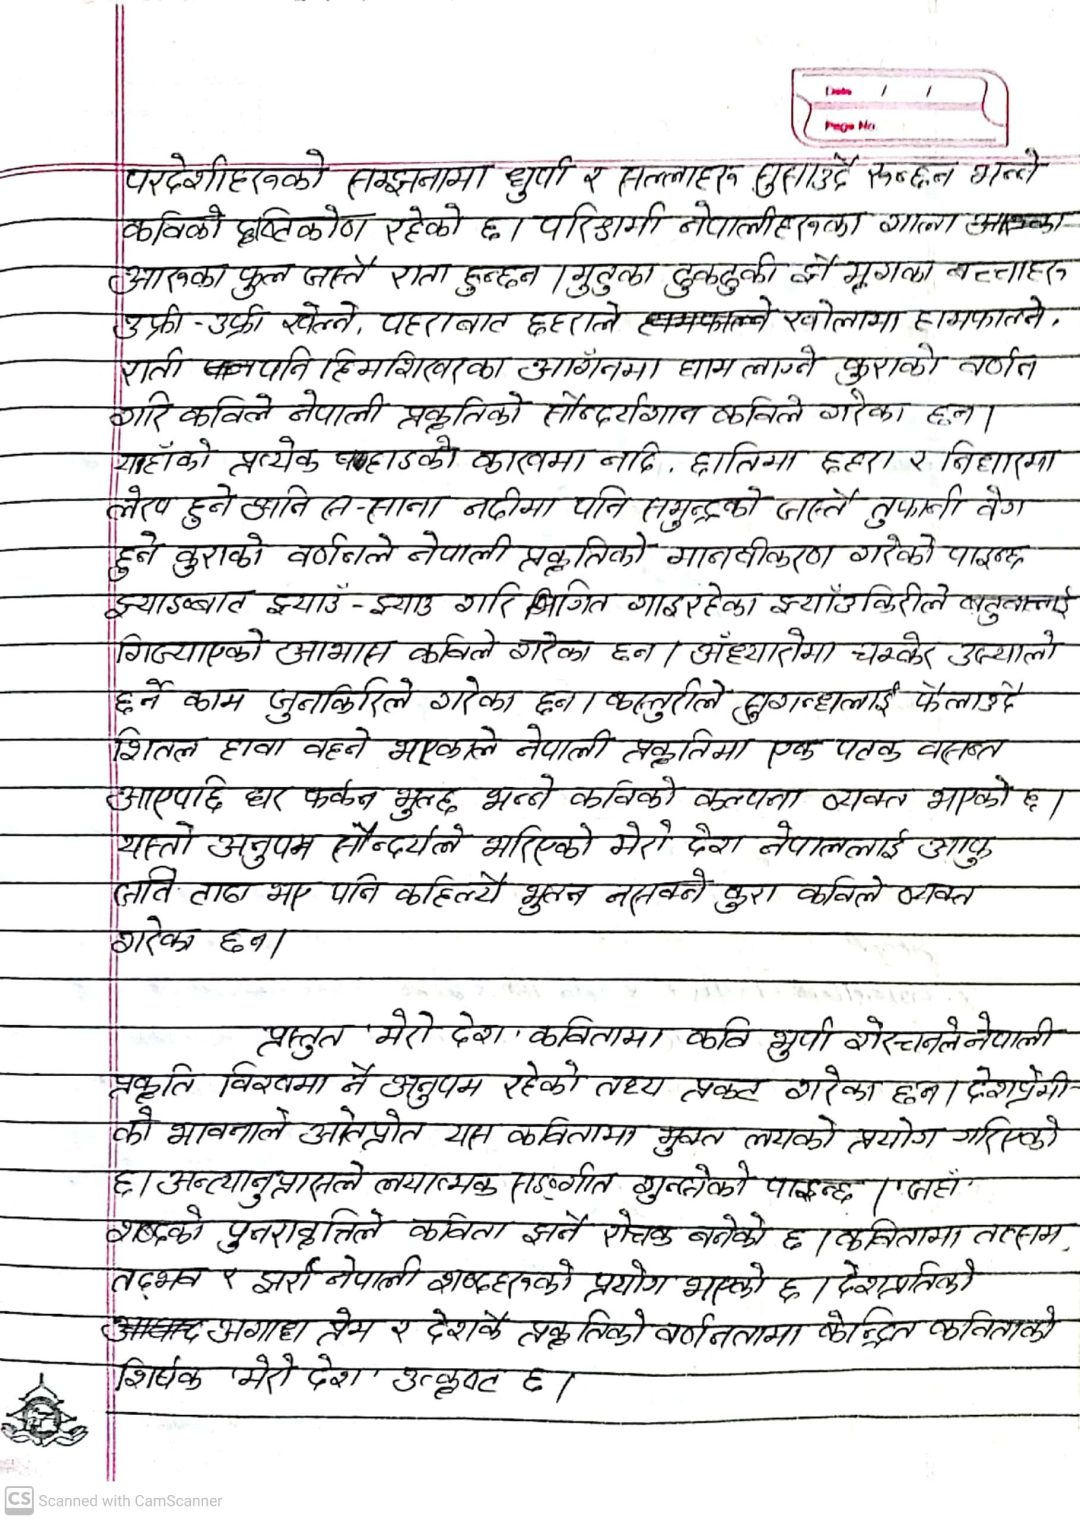 Date / /
Page No.
परदेशीहरुको सम्झनामा धुपी र सल्लाहरु सुसाउदै रुन्छन भन्ने
कविको दृष्टिकोण रहेको छ। परिश्रमी नेपालीहरुका गाला
आरुका फुल जस्तै राता हुन्छन । मुटुका ढुकढुकी झै मृगका बच्चाहरु
उफ्री-उफ्री खेल्ने, पहराबाट छहराले खोलामा हामफाल्ने,
राती पनि हिमशिखरका आगँनमा घाम लाग्ने कुराको वर्णन
गरि कविले नेपाली प्रकृतिको सौन्दर्यगान कविले गरेका छन।
यहाँको प्रत्येक पहाडको काखमा नदि, छातिमा छहरा र निधारमा
लेख हुने अनि स-साना नदीमा पनि समुन्द्रको जस्तै तुफानी वेग
हुने कुराको वर्णनले नेपाली प्रकृतिको मानवीकरण गरेको पाइन्छ
झ्याङबाट झ्याउँ-झ्याउ गरि गित गाइरहेका झ्याँउकिरीले बटुवालाई
गिज्याएको आभास कविले गरेका छन। अँध्यारोमा चम्केर उज्यालो
छर्ने काम जुनकिरिले गरेका छन। कस्तुरीले सुगन्धलाई फैलाउदै
शितल हावा वहने भएकाले नेपाली प्रकृतिमा एक पटक वसन्त
आएपछि घर फर्कन भुल्छ भन्ने कविको कल्पना व्यक्त भएको छ।
यस्तो अनुपम सौन्दर्यले भरिएको मेरो देश नेपाललाई आफु
जति टाढा भए पनि कहिल्यै भुल्न नसक्ने कुरा कविले व्यक्त
गरेका छन।
प्रस्तुत 'मेरो देश' कवितामा कवि भुपी शेरचनले नेपाली
प्रकृति विश्वमा नै अनुपम रहेको तथ्य प्रकट गरेका छन। देशप्रेमी-
को भावनाले ओतप्रोत यस कवितामा मुक्त लयको प्रयोग गरिएको
छ। अन्त्यानुप्रासले लयात्मक सङ्गीत गुन्जेको पाइन्छ । 'जहाँ'
शब्दको पुनरावृत्तिले कविता झनै रोचक बनेको छ। कवितामा तत्सम,
तद्भव र झर्रा नेपाली शब्दहरुको प्रयोग भएको छ। देशप्रतिको
अगाध प्रेम र देशकै प्रकृतिको वर्णनतामा केन्द्रित कविताको
शिर्षक 'मेरो देश' उत्कृष्ट छ।
CS Scanned with CamScanner